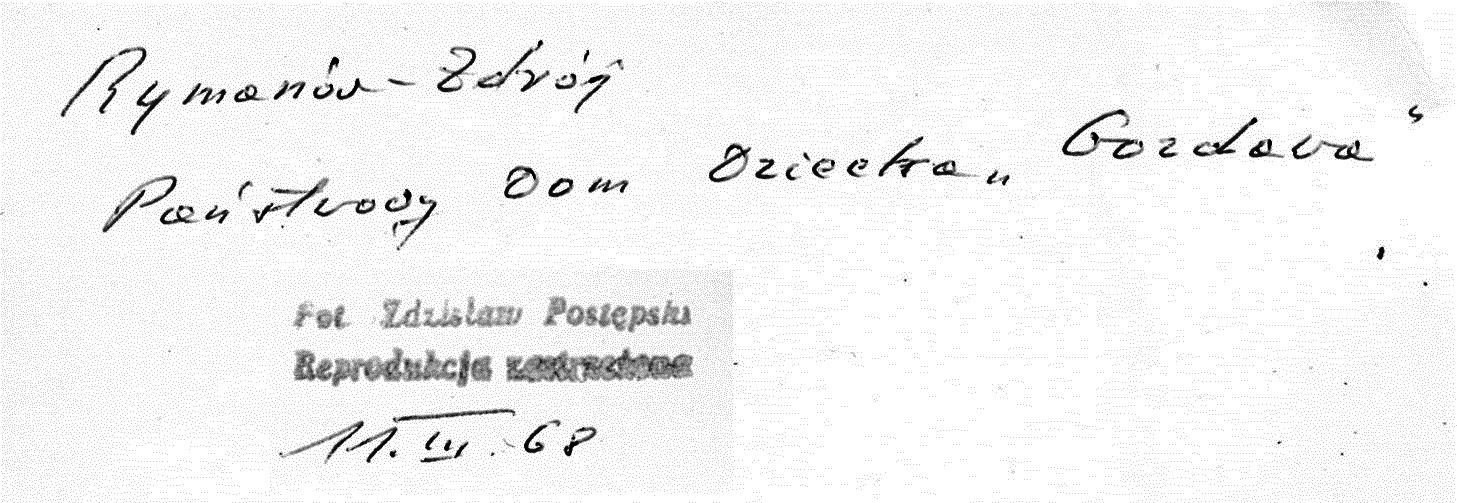 Rymanów-Zdrój
Państwowy Dom Dziecka „Gozdawa”
Fot Zdzisław Postępski
Reprodukcja zastrzeżona
11.III.68